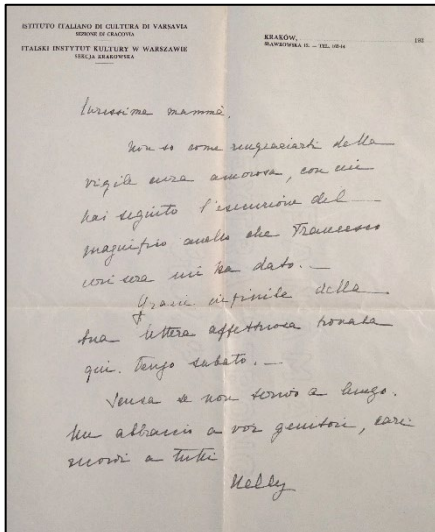 ISTITUTO ITALIANO DI CULTURA DI VARSAVIA
SEZIONE DI CRACOVIA
ITALSKI INSTYTUT KULTURY W WARSZAWIE
SEKCJA KRAKOWSKA
KRAKÓW, 193
SŁAWKOWSKA 12. — TEL.
Carissima mamma,
Non so come ringraziarti della
vigile cura amorosa, con cui
hai seguito l'esecuzione del
magnifico anello che Francesco
ieri sera mi ha dato. —
Grazie infinite della
tua lettera affettuosa trovata
qui. sabato. —
Scusa se non scrivo a lungo.
Un abbraccio a voi genitori, cari
ricordi a tutti
Nelly